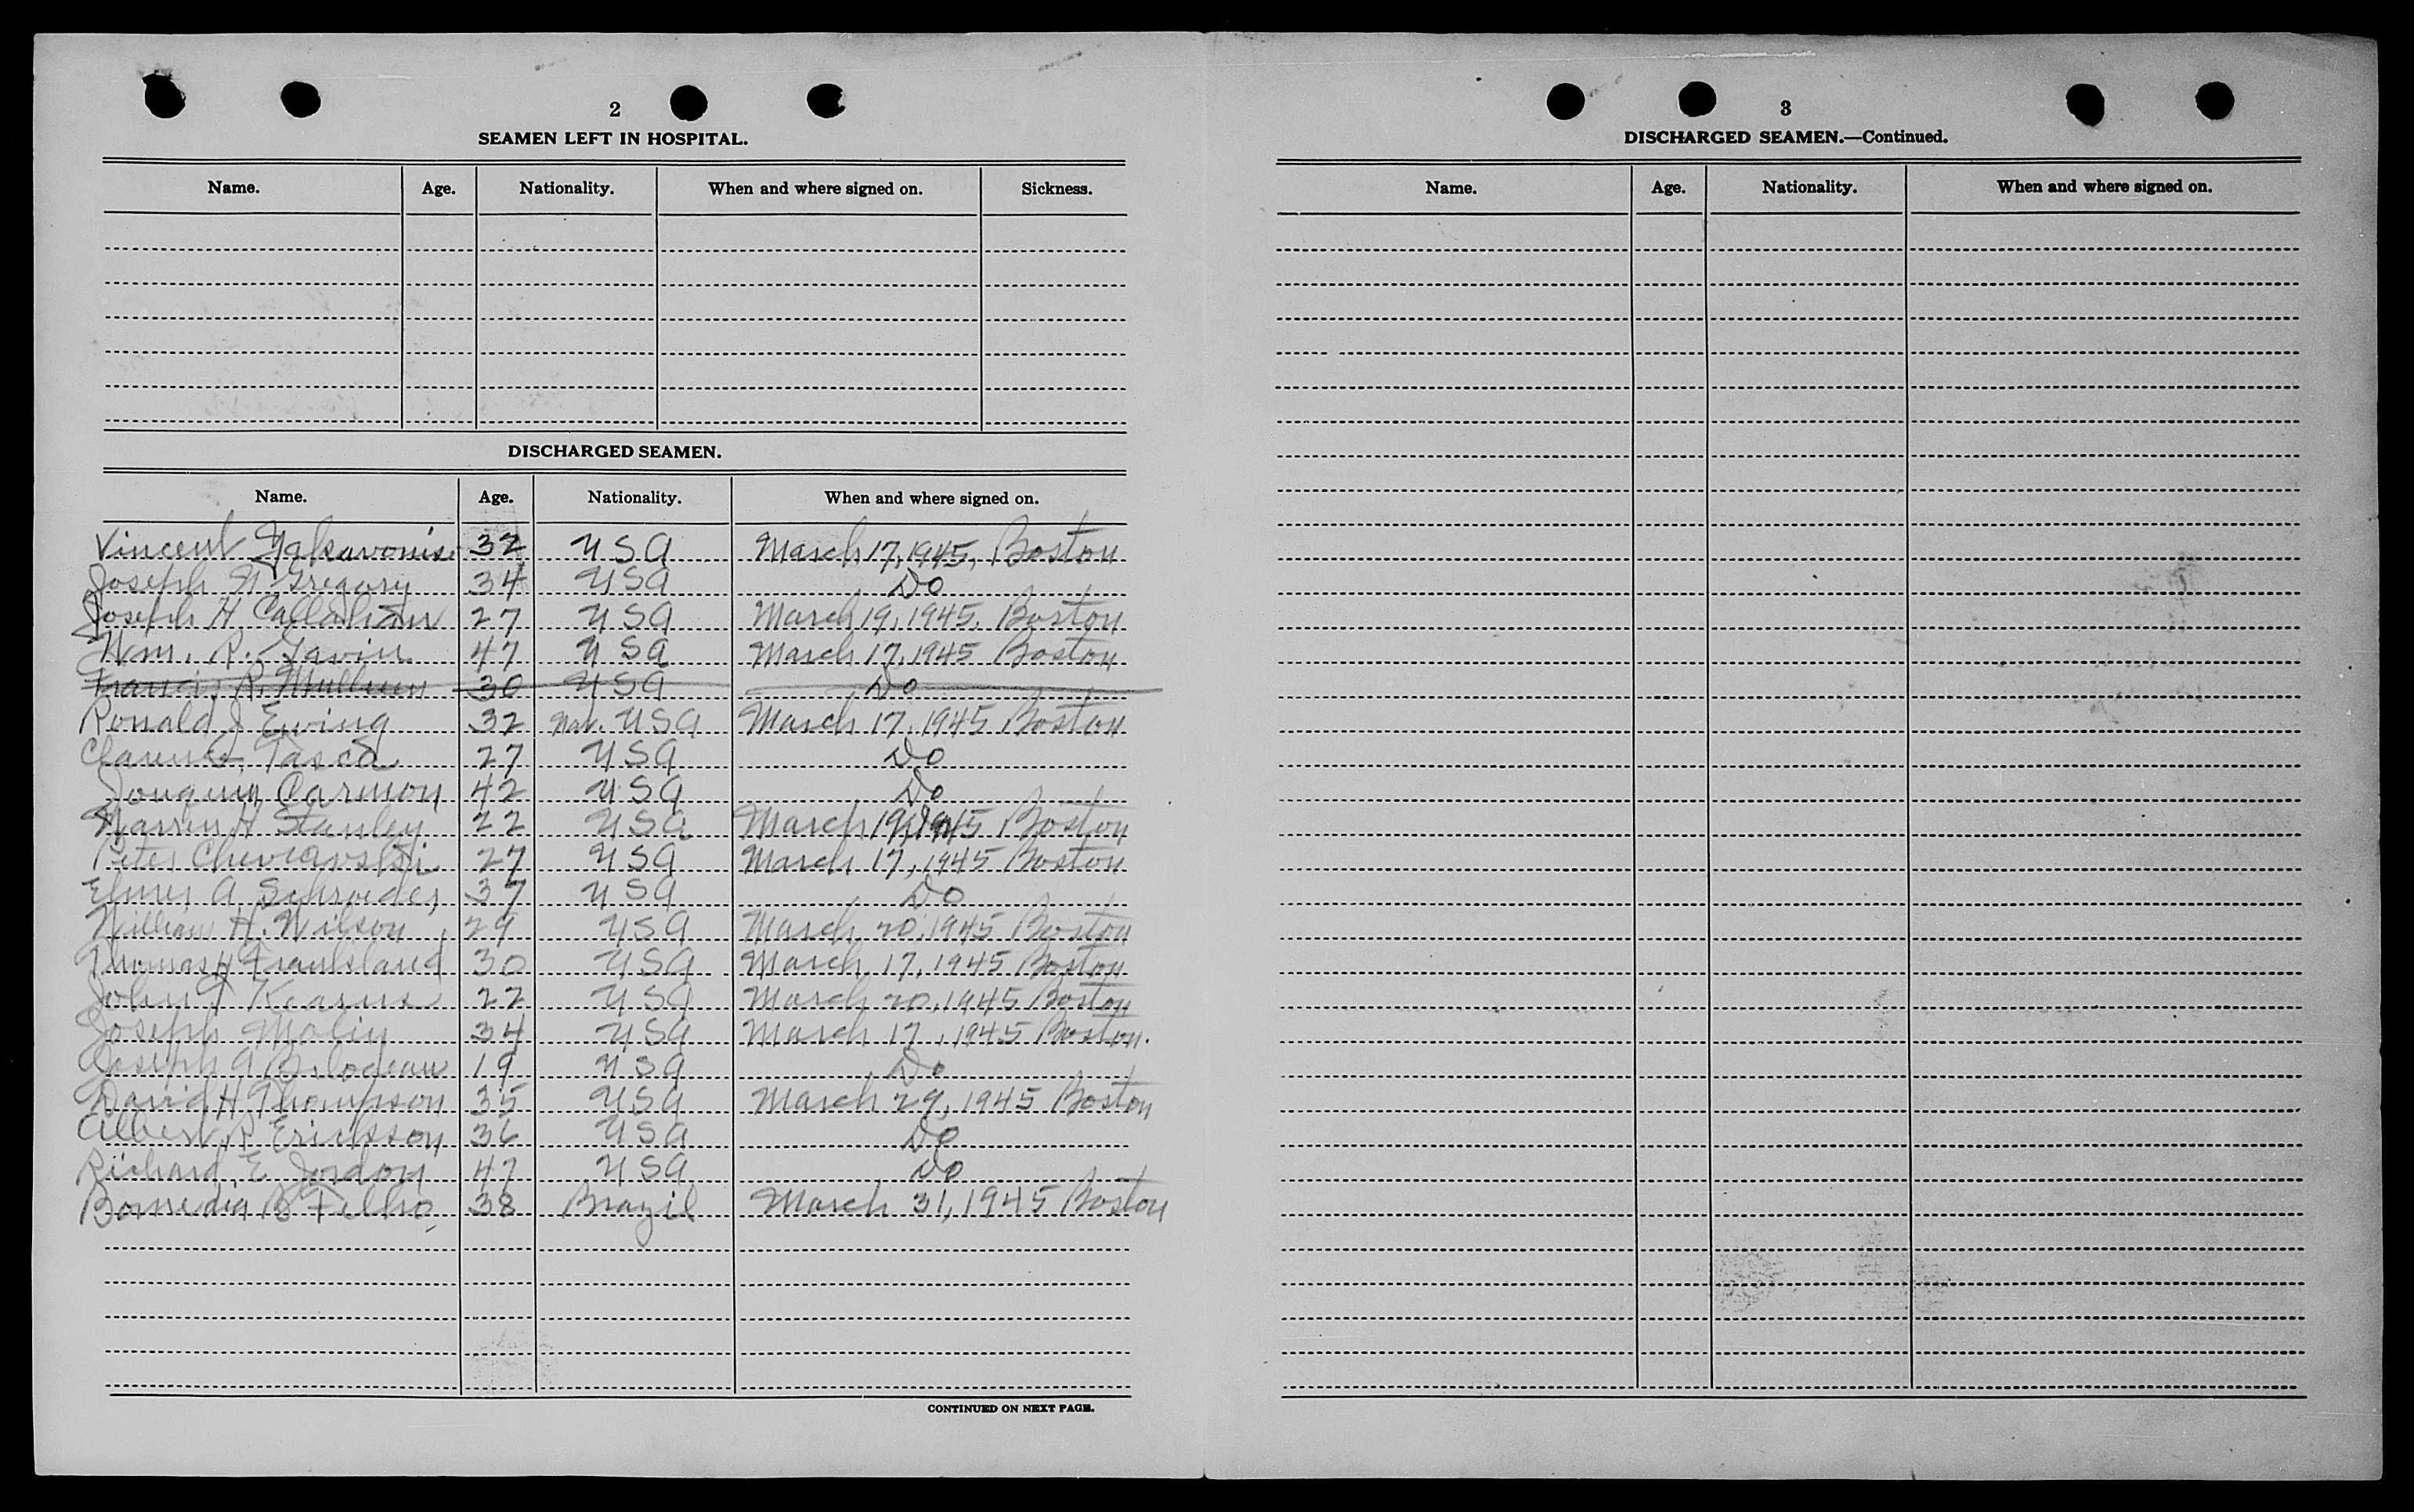 2
SEAMEN LEFT IN HOSPITAL.
Name. Age. Nationality. When and where signed on. Sickness.
DISCHARGED SEAMEN.
Name. Age. Nationality. When and where signed on.
Vincent 32 USA March 17, 1945, Boston
Joseph Gregory 34 USA Do
Joseph H Callahan 27 USA March 19, 1945. Boston
Wm. R. Gavin 47 USA March 17, 1945 Boston
Francis R. Mullen 30 USA Do
Ronald J Ewing 32 Nat. USA March 17, 1945 Boston
Tasca 27 USA Do
42 USA Do
Warren H Stanley 22 USA March 1945 Boston
Peter 27 USA March 17, 1945 Boston
Elmer A Schroeder 37 USA Do
William H. Wilson 29 USA March 20, 1945 Boston
Thomas H 30 USA March 17, 1945 Boston
John Kearns 22 USA March 20, 1945 Boston
Joseph Molin 34 USA March 17, 1945 Boston.
Joseph A Bilodeau 19 USA Do
David H Thompson 35 USA March 29, 1945 Boston
Albert R Ericsson 36 USA Do
Richard E Jordon 47 USA Do
B Filho 38 Brazil March 31, 1945 Boston
CONTINUED ON NEXT PAGE.
3
DISCHARGED SEAMEN.—Continued.
Name. Age. Nationality. When and where signed on.